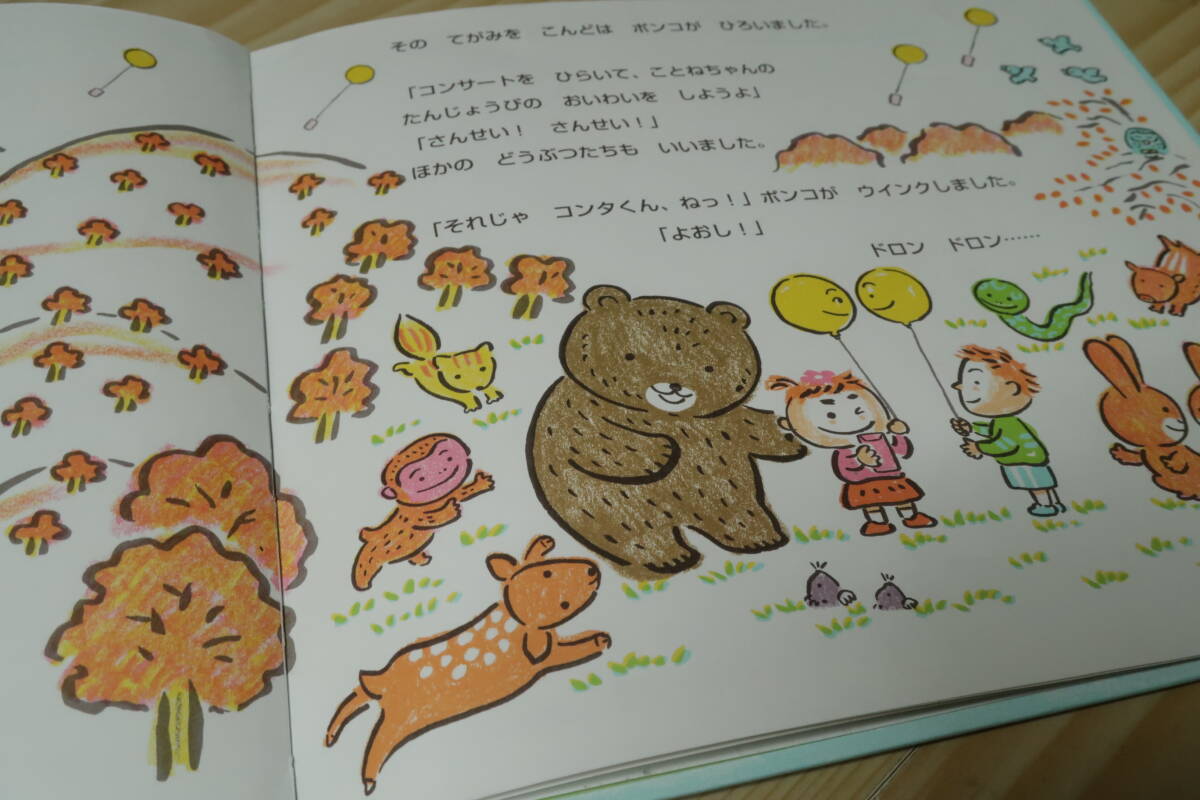 その　てがみを　こんどは　ポンコが　ひろいました。
「コンサートを　ひらいて、ことねちゃんの
たんじょうびの　おいわいを　しようよ」
「さんせい！　さんせい！」
ほかの　どうぶつたちも　いいました。
「それじゃ　コンタくん、ねっ！」ポンコが　ウインクしました。
「よおし！」
ドロン　ドロン……